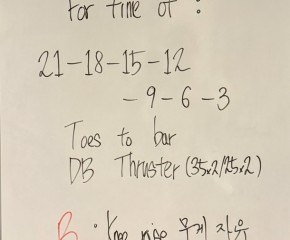 For time of :
21-18-15-12
-9-6-3
Toes to bar
DB Thruster (35x2/25x2)
B. Knee raise 무게 자유